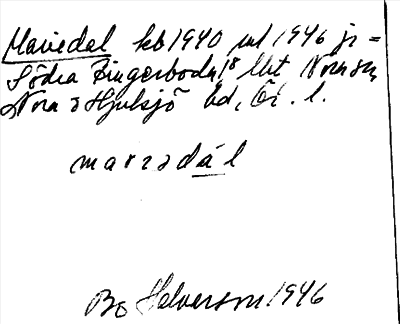 Mariedal kb 1940 ut 1946 je =
Södra Fingerboda 1⁸ Mt Nora sn
Nora o Hjulsjö bd, Ör. l.
marɩədál
Bo Halvarson 1946